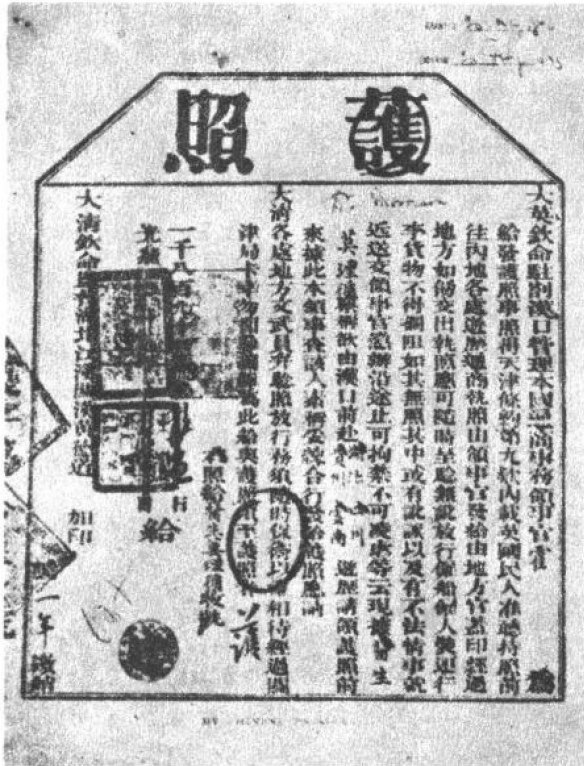 護照
大英欽命駐劄漢口管理本國通商事務領事官霍 為
給發護照事照得天津條約第九款內載英國民人准聽持照前
往內地各處遊歷通商執照由領事官發給由地方官蓋印經過
地方如飭交出執照應可隨時呈驗無訛放行僱船僱人裝運行
李貨物不得攔阻如其無照其中或有訛誤以及有不法情事就
近送交領事官懲辦沿途止可拘禁不可凌虐等云現據醫生
莫理循稟稱欲由漢口前赴 湖北 四川 貴州 雲南 遊歷請領護照前
來據此本領事查該人素稱妥練合行發給護照應請
大清各處地方文武員弁驗照放行務須隨時保衛以禮相待經過關
津局卡幸勿留難 為此給與護照須至護照者
右照給 莫理循收執
一千八百九
光緒
給
大清欽命監督湖北江漢關 漢黃德道 加印
一年繳銷